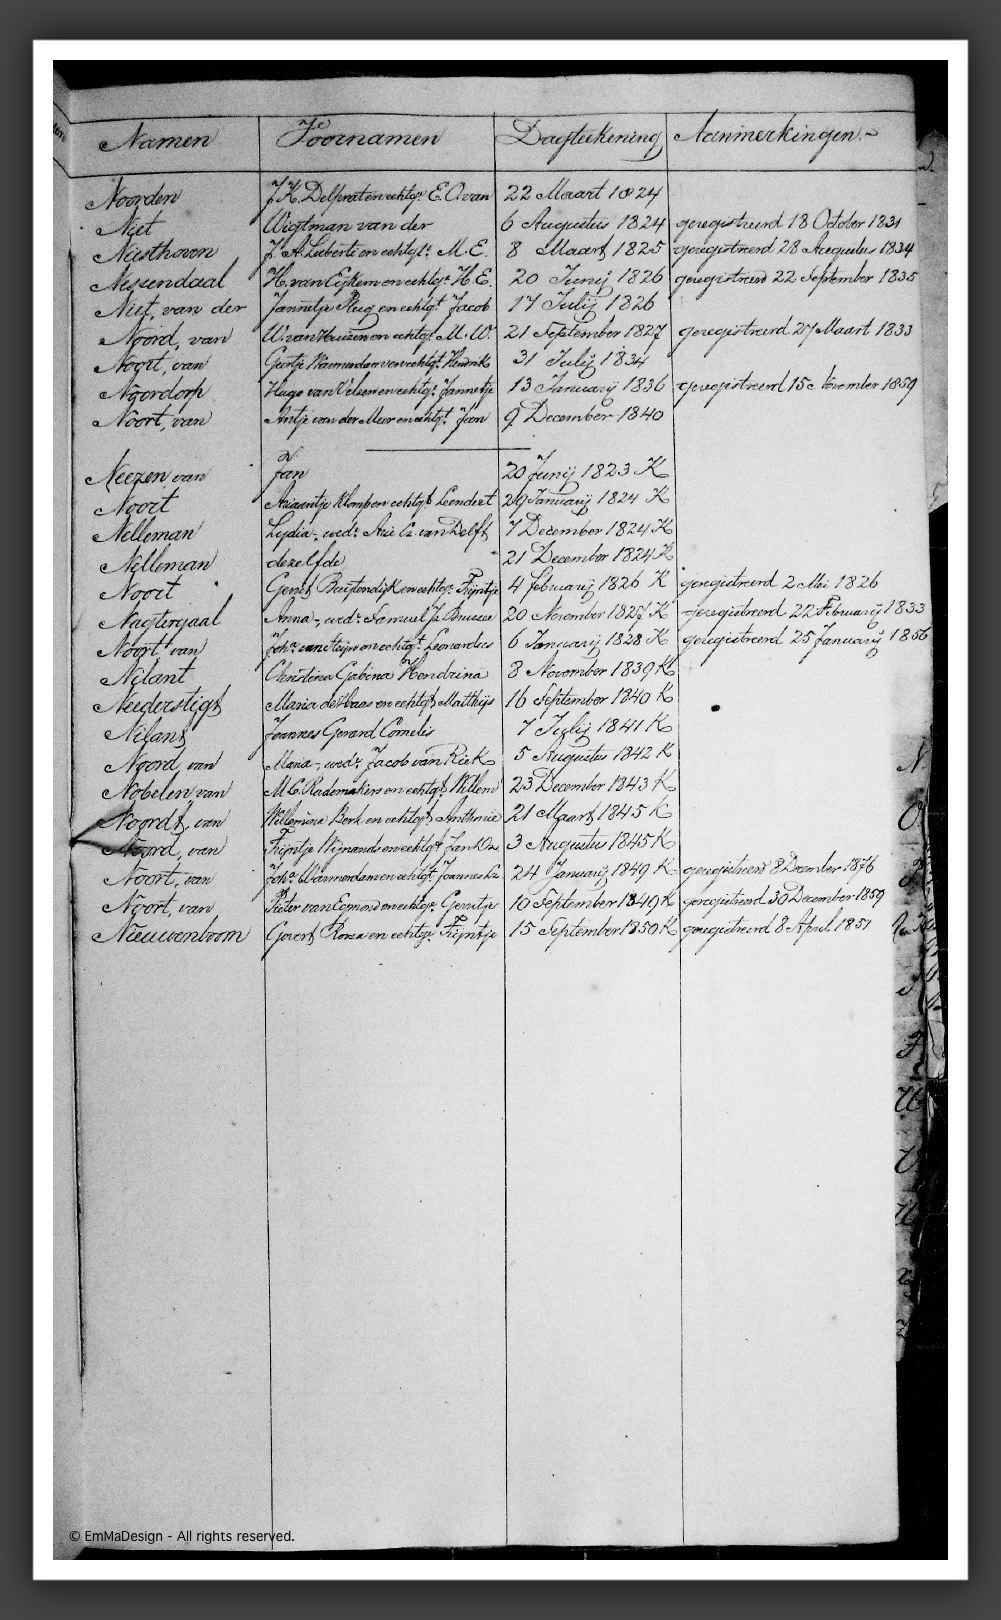 Namen Voornamen Dagteekening Aanmerkingen.
Noorden J. K. Delprat en echtg: E. C. van 22 Maart 1824
Niet Wigtman van der 6 Augustus 1824 geregistreerd 18 October 1831
Niesthoven J. A. Liberti en echtgt: M. E. 8 Maart 1825 geregistreerd 28 Augustus 1834
Nessendaal H. van Eijkem en echtg: H. E. 20 Junij 1826 geregistreerd 22 September 1835
Niet, van der Jannetje Plug en echtgt Jacob 17 Julij 1826
Noord, van W. van Huizen en echtg: M. W. 21 September 1827 geregistreerd 27 Maart 1833
Noort, van Geertje Warmerdam van echtgt Hendrik 31 Julij 1834
Noordorp Hugo van Velsen en echtg: Jannetje 13 Januarij 1836 geregistreerd 15 November 1859
Noort, van Antje van der Meer en echtgt Jan 9 December 1840
Neezen van Jan 20 Junij 1823 K
Noort Ariaantje Klomp en echtgt Leendert 29 Januarij 1824 K
Nelleman Lydia, wed: Arie Cz. van Delft 7 December 1824 K
Nelleman dezelfde 21 December 1824 K
Noort Gerrit Buitendijk en echtg: Trijntje 4 februarij 1826 K geregistreerd 2 Mei 1826
Nagtergaal Anna, wed: Samuel Jz 20 November 1827 K geregistreerd 22 Februarij 1833
Noort van Joha. van en echtgt Leonardus 6 Januarij 1828 K geregistreerd 25 Januarij 1856
Nilant Christina Gabina Hendrina 8 November 1839 K
Nederstigt Maria de Haas en echtgt Matthijs 16 September 1840 K
Nilant Joannes Gerard Cornelis 7 Julij 1841 K
Noord, van Maria, wed: Jacob van Riek 5 Augustus 1842 K
Nobelen van M. C. Rademakers en echtgt Willem 23 December 1843 K
Noordt, van Willemina Berk en echtgt Anthonie 21 Maart 1845 K
Noord, van Trijntje Wijnands en echtgt Jan Dz 3 Augustus 1845 K
Noort, van Joha. Warmerdam en echtgt Joannes Lz 24 Januarij 1849 K geregistreerd 8 December 1876
Noort, van Pieter van Egmond en echtg: Gerritje 10 September 1849 K geregistreerd 30 December 1859
Nieuwenboom Govert Rosa en echtg: Trijntje 15 September 1850 K geregistreerd 8 April 1851
© EmMaDesign - All rights reserved.